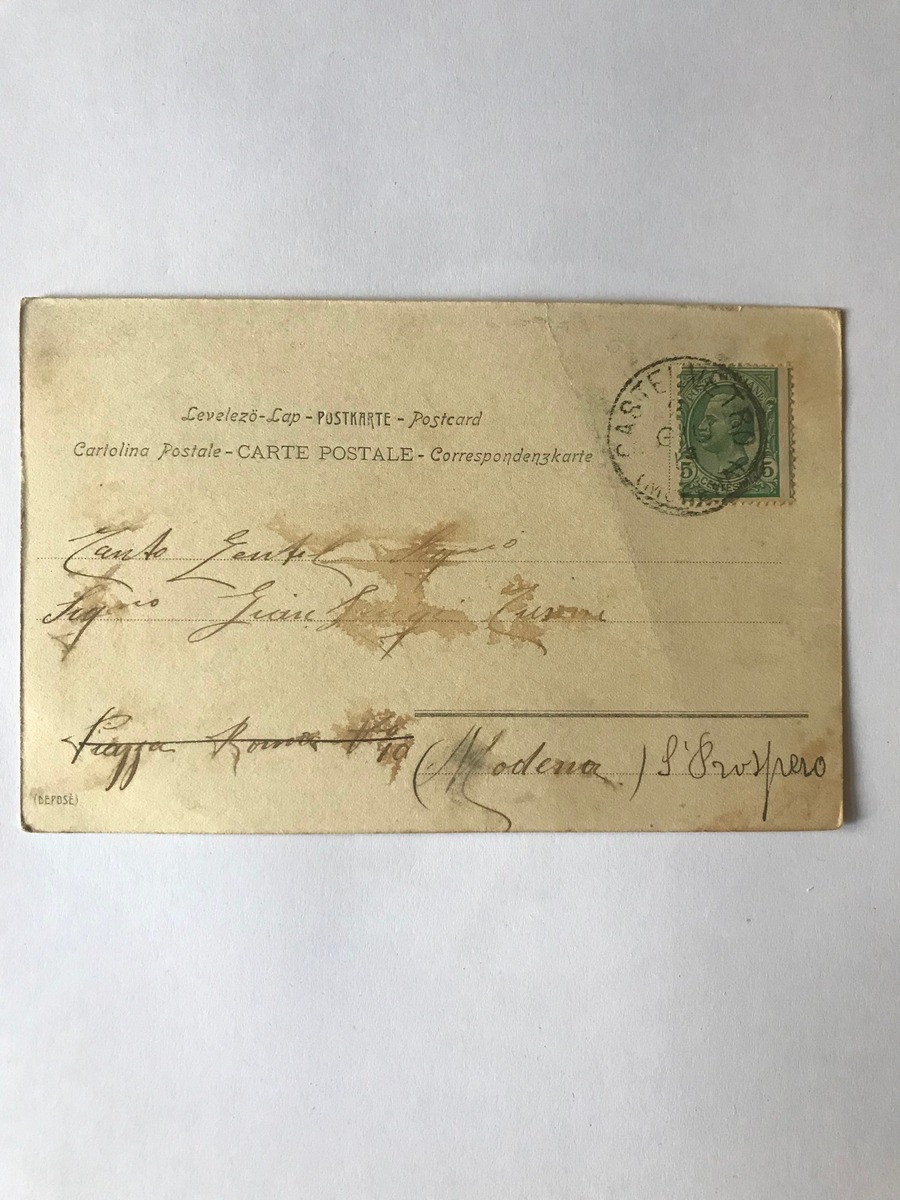 Levelezö-Lap - POSTKARTE - Postcard
Cartolina Postale - CARTE POSTALE - Correspondenzkarte
CASTELVETRO
5 5
Tanto Gentil
Gian Luigi
Piazza Roma No 10
(Modena) S. Prospero
(DEPOSÉ)